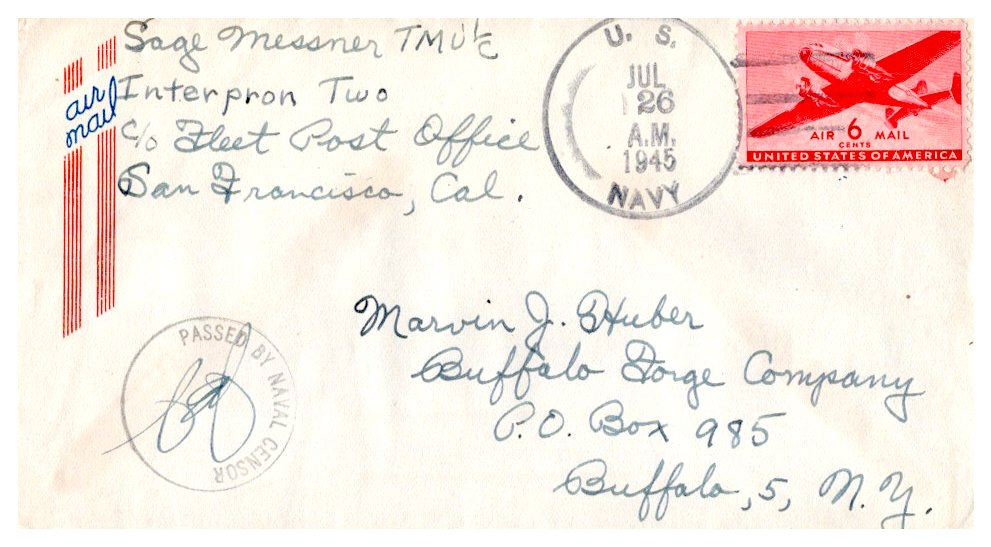 Sage Messner TMV1/C
Interpron Two
c/o Fleet Post Office
San Francisco, Cal.
air
mail
U. S.
JUL
26
A.M.
1945
NAVY
AIR 6 MAIL
CENTS
UNITED STATES OF AMERICA
Marvin J. Huber
Buffalo Forge Company
P.O. Box 985
Buffalo, 5, N.Y.
PASSED BY NAVAL CENSOR